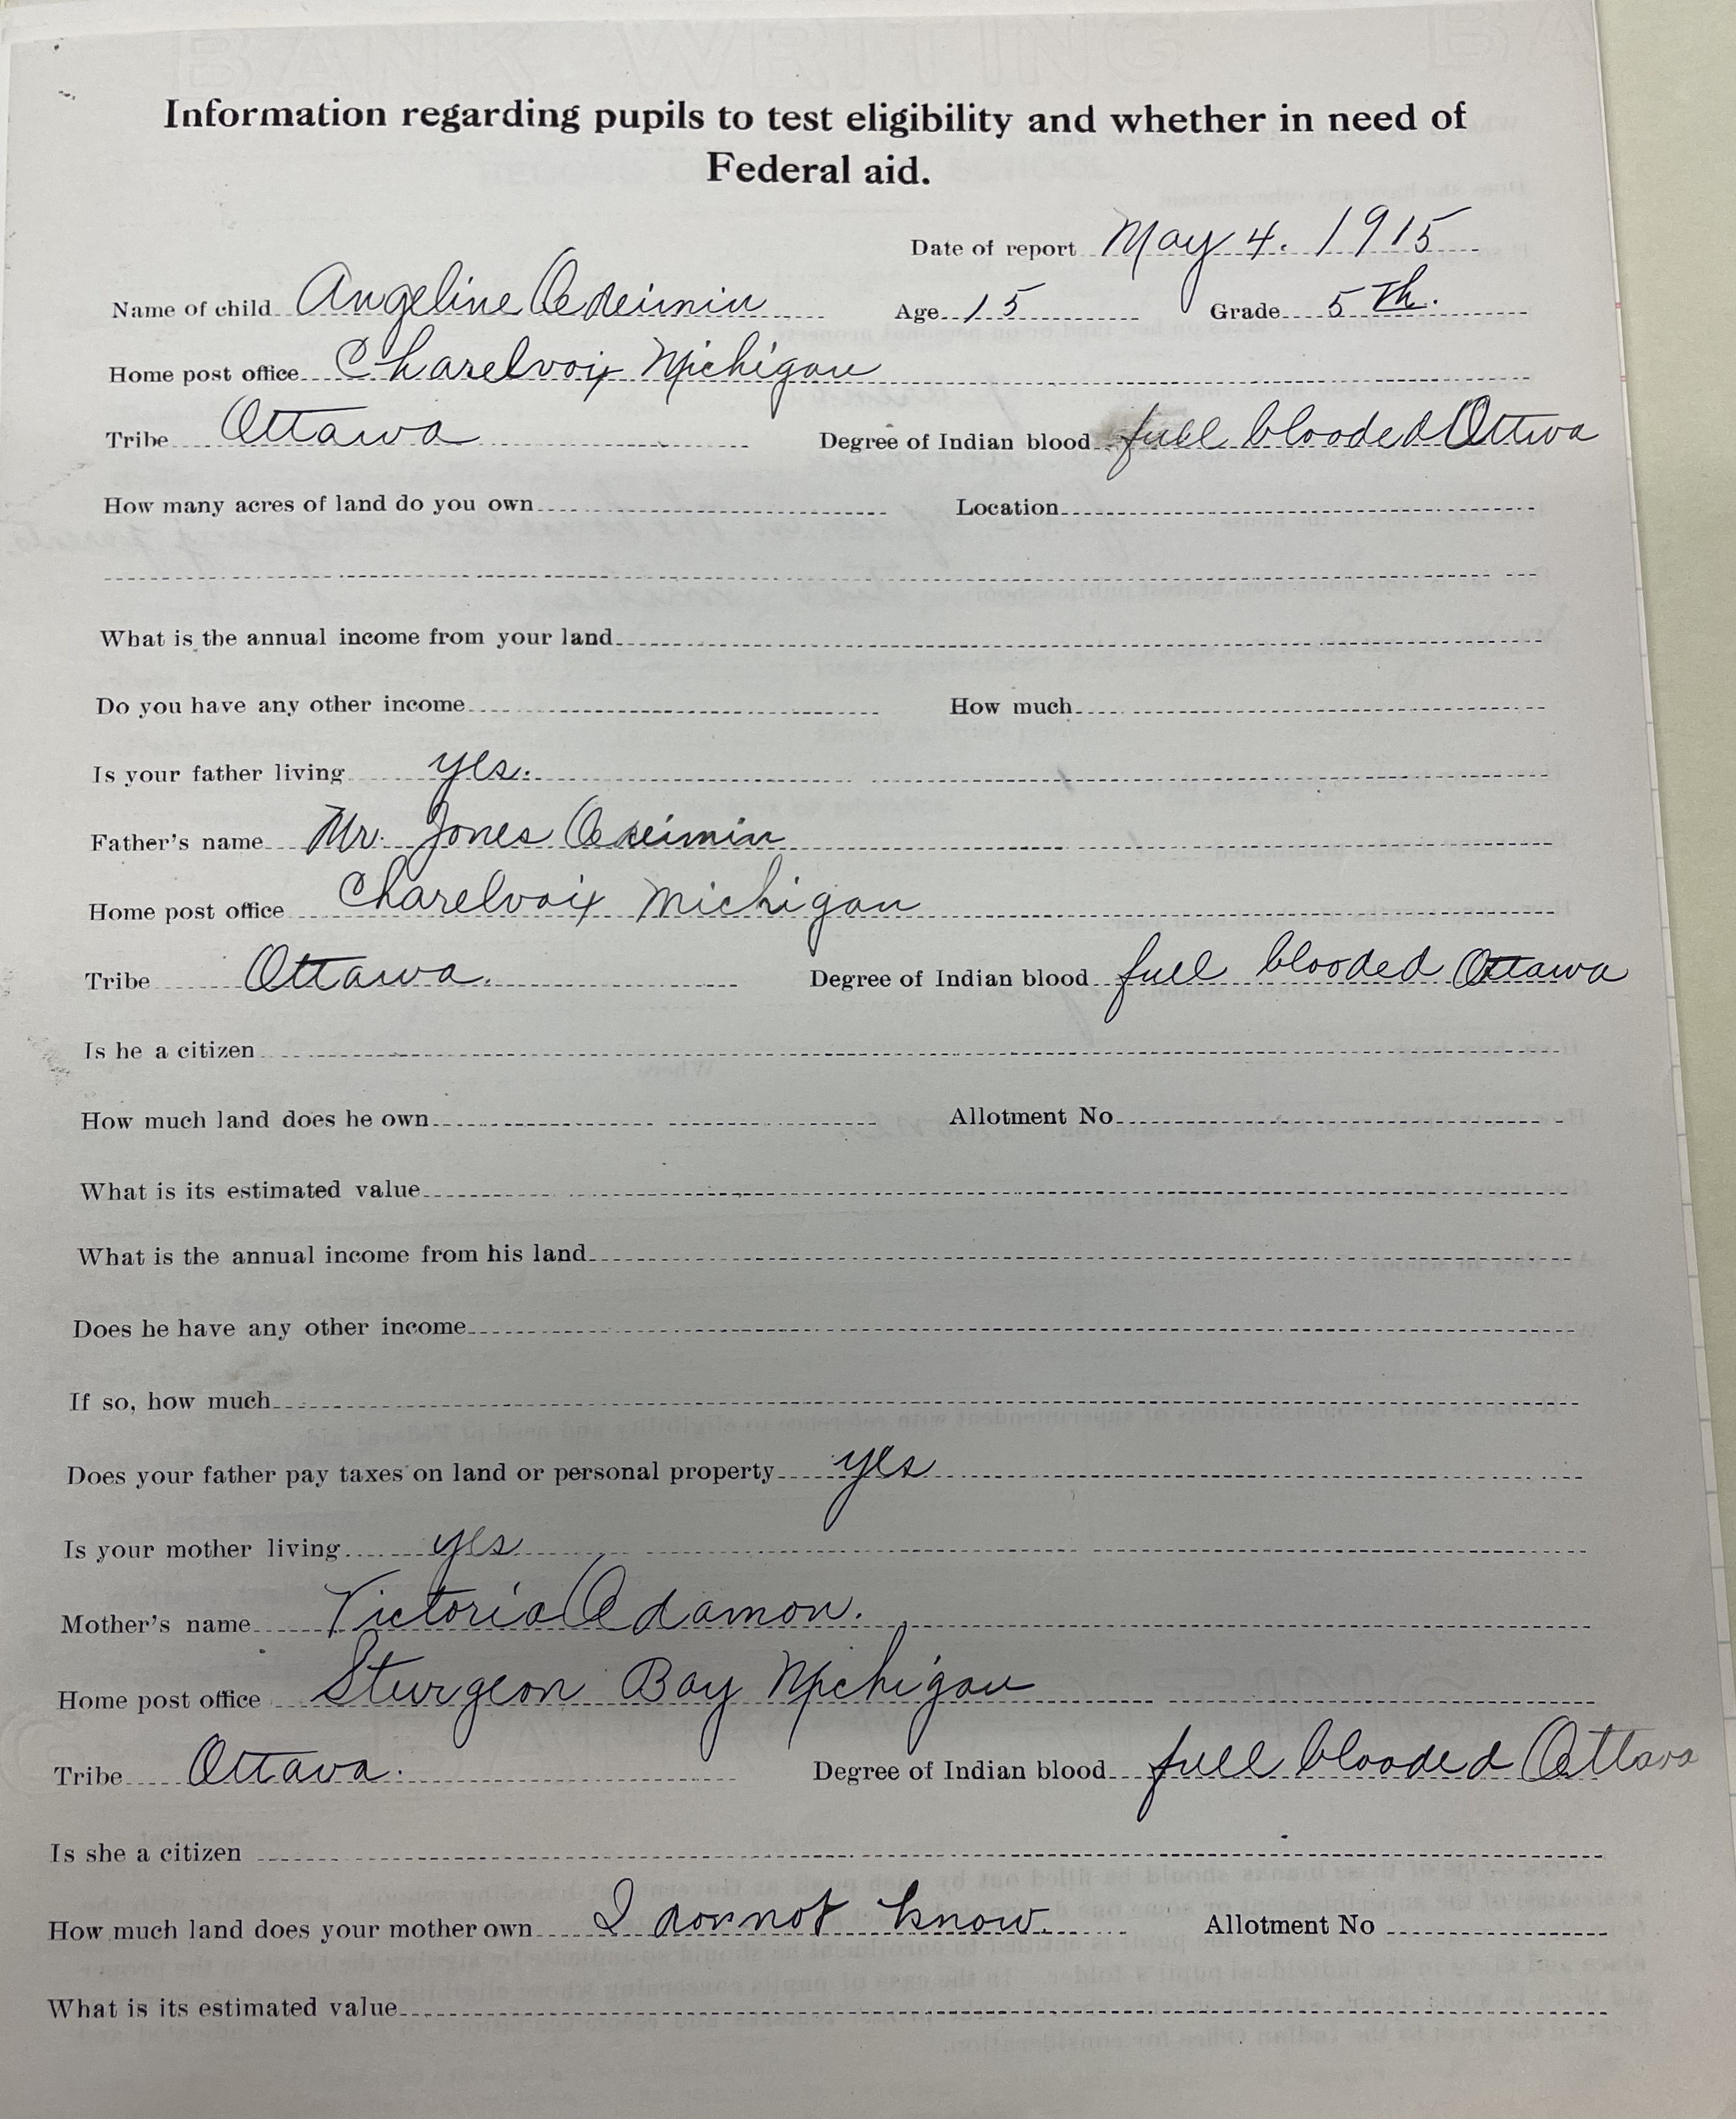 Information regarding pupils to test eligibility and whether in need of
Federal aid.
Date of report May 4. 1915
Name of child Angeline Odeimin Age 15 Grade 5th.
Home post office Charelvoix Michigan
Tribe Ottawa Degree of Indian blood full blooded Ottwa
How many acres of land do you own Location
What is the annual income from your land
Do you have any other income How much
Is your father living yes.
Father's name Mr. Jones Odeimin
Home post office Charelvoix Michigan
Tribe Ottawa. Degree of Indian blood full blooded Ottawa
Is he a citizen
How much land does he own Allotment No
What is its estimated value
What is the annual income from his land
Does he have any other income
If so, how much
Does your father pay taxes on land or personal property yes
Is your mother living yes
Mother's name Victoria Odamon.
Home post office Sturgeon Bay Michigan
Tribe Ottava. Degree of Indian blood full blooded Ottava
Is she a citizen
How much land does your mother own I donnot know. Allotment No
What is its estimated value